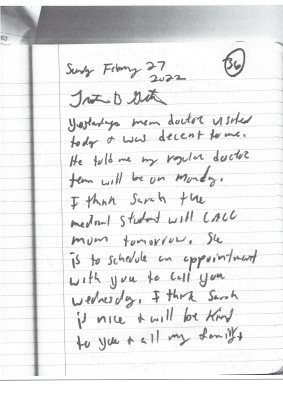 36
Sundy Febrary 27
2022
D
Yesterdays mean doctor visited
today & was decent to me.
He told me my regular doctor
team will be on Monday.
I think Sarah the
medical student will CALL
mom tomorrow. She
is to schedule an appointment
with you to call you
wednesday. I think Sarah
is nice & will be Kind
to you & all my family